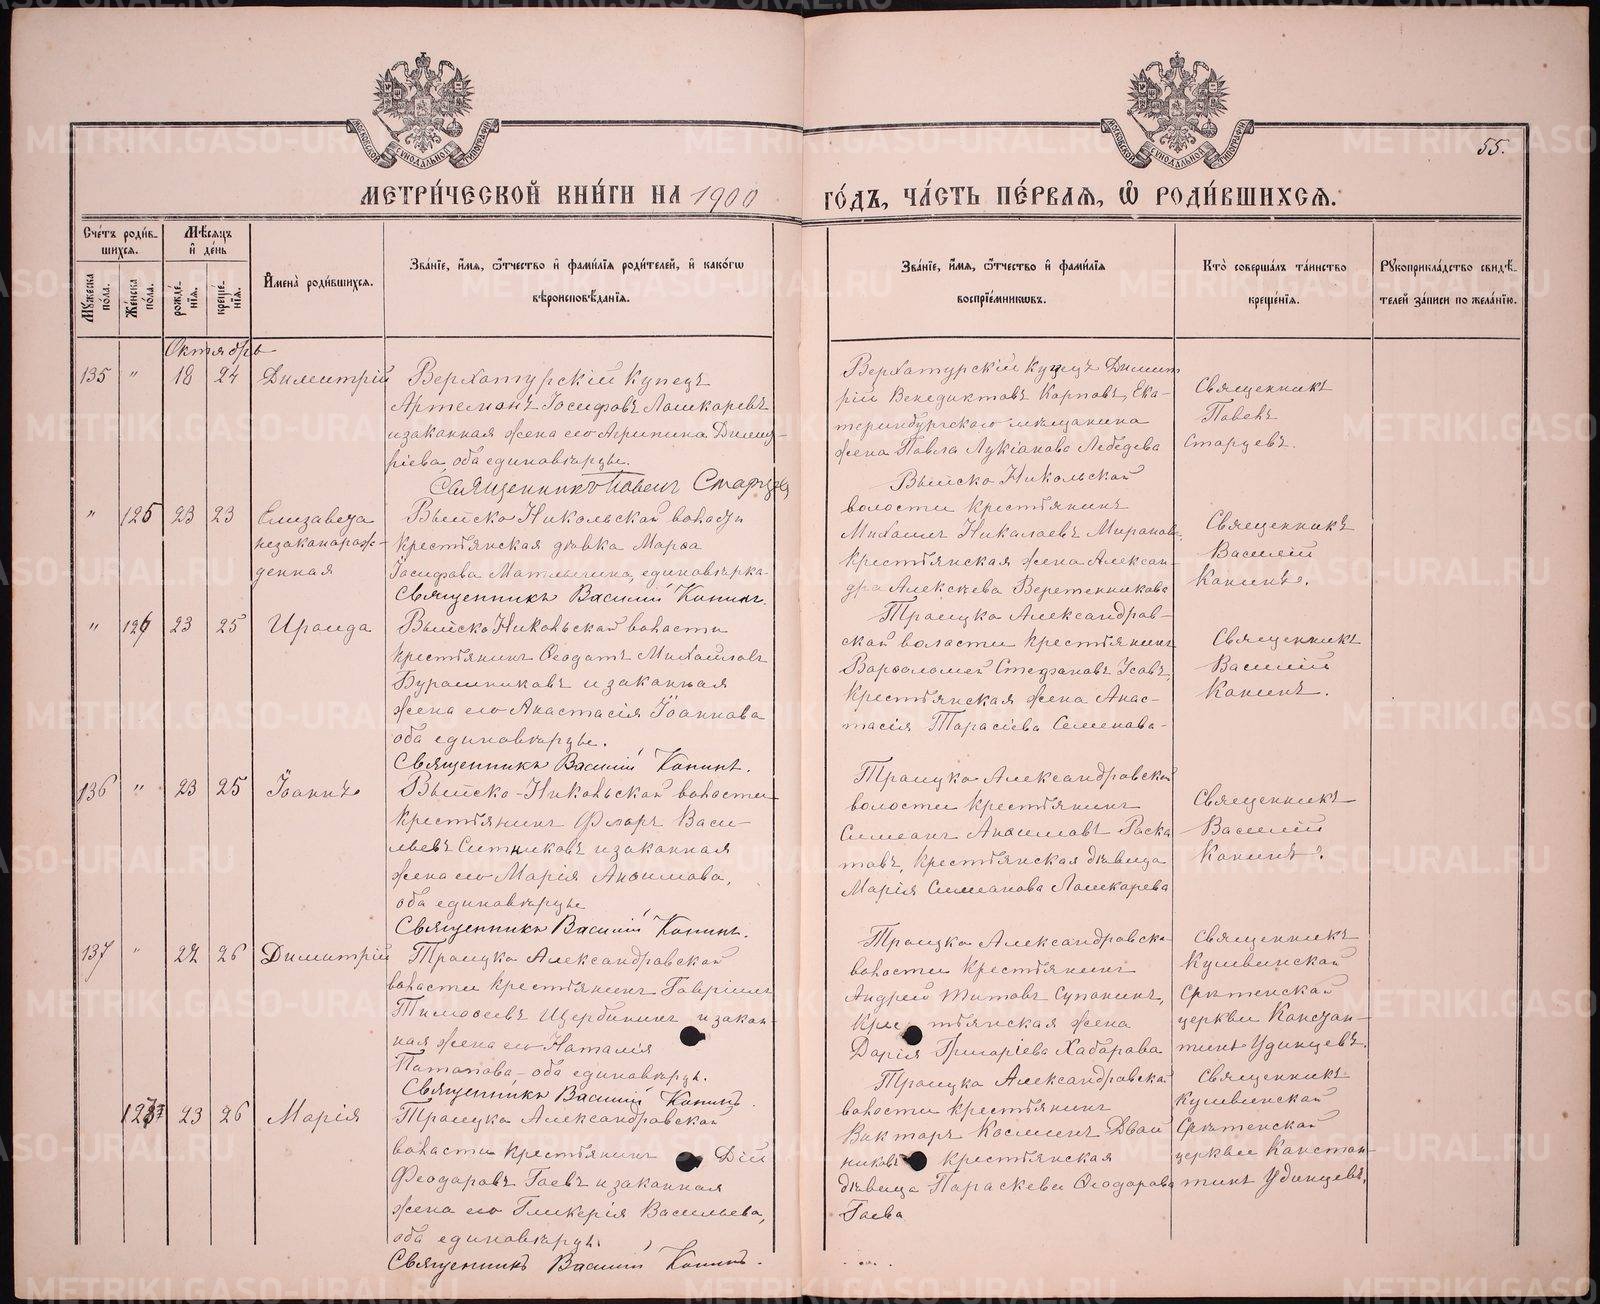 МОСКОВСКОЙ СѴНОДАЛЬНОЙ ТИПОГРАФІИ
МОСКОВСКОЙ СѴНОДАЛЬНОЙ ТИПОГРАФІИ
55.
МЕТРИ́ЧЕСКОЙ КНИ́ГИ НА 1900 ГО́ДЪ, ЧА́СТЬ ПЕ́РВАѦ, Ѡ҆ РОДИ́ВШИХСѦ.
Сче́тъ роди́в-
шихся.
Мѣ́сяцъ
и҆ де́нь
Мꙋжеска по́ла.
Же́нска по́ла.
рожде́-
нїя.
креще́-
нїя.
И҆мена̀ роди́вшихся.
Зва́нїе, и҆́мя, ѻ҆́тчество и҆ фами́лїя роди́телей, и҆ како́гѡ
вѣроисповѣ́данїя.
Зва́нїе, и҆́мя, ѻ҆́тчество и҆ фами́лїя
воспрїе́мникѡвъ.
Кто̀ соверша́лъ та́инство
креще́нїя.
Рꙋкоприкла́дство свидѣ́-
телей за́писи по жела́нїю.
Октябрь
135 " 18 24 Димитрій
Верхотурскій Купецъ
Артемонъ Іосифовъ Лошкаревъ
и законная жена его Агрипина Димит-
ріева, оба единовѣрцы.
Священникъ Павелъ Старцев
Верхотурскій Купецъ Димит
рій Венедиктовъ Карповъ, Ека-
теринбургскаго мѣщанина
жена Павла Лукіанова Лебедева
Священникъ
Павелъ
Старцевъ.
" 125 23 23 Елизавета
незаконорож-
денная
Выйско Никольской волости
крестьянская дѣвка Марѳа
Іосифова Матлыгина, единовѣрка.
Священникъ Василій Конинъ.
Выйско Никольской
волости крестьянинъ
Михаилъ Николаевъ Миронов.
крестьянская жена Алексан-
дра Алексѣева Веретенникова
Священникъ
Василій
Конинъ.
" 126 23 25 Ираида
Выйско Никольской волости
крестьянинъ Ѳеодотъ Михайловъ
Бурашниковъ и законная
жена его Анастасія Іоаннова
оба единовѣрцы.
Священникъ Василій Конинъ.
Троицко Александров-
ской волости крестьянинъ
Варѳоломей Стефановъ Усовъ,
крестьянская жена Анас-
тасія Тарасіева Семенова-
Священникъ
Василій
Конинъ.
136 " 23 25 Іоаннъ
Выйско-Никольской волости
крестьянинъ Флоръ Васи-
льевъ Ситниковъ и законная
жена его Марія Анѳимова,
оба единовѣрцы
Священникъ Василій Конинъ.
Троицко Александровской
волости крестьянинъ
Симеонъ Анѳимовъ Раска
товъ, крестьянская дѣвица
Марія Симеонова Лошкарева
Священникъ
Василій
Конинъ.
137 " 22 26 Димитрій
Троицко Александровской
волости крестьянинъ Гавріилъ
Тимоѳеевъ Щербининъ и закон-
ная жена его Наталія
Потапова - оба единовѣрцы.
Священникъ Василій Конинъ.
Троицко Александровска
волости крестьянинъ
Андрей Титовъ Супонинъ,
крестьянская жена
Дарія Григоріева Хабарова
Священникъ
Кушвинской
Срѣтенской
церкви Констан-
тинъ Удинцевъ.
127 23 26 Марія
Троицко Александровской
волости крестьянинъ Дій
Ѳеодоровъ Гаевъ и законная
жена его Гликерія Васильева,
оба единовѣрцы.
Священникъ Василій Конинъ.
Троицко Александровска
волости крестьянинъ
Викторъ Косминъ Двой
никовъ крестьянская
дѣвица Параскева Ѳеодорова
Гаева
Священникъ
Кушвинской
Срѣтенской
церкви Констан-
тинъ Удинцевъ.
METRIKI.GASO-URAL.RU